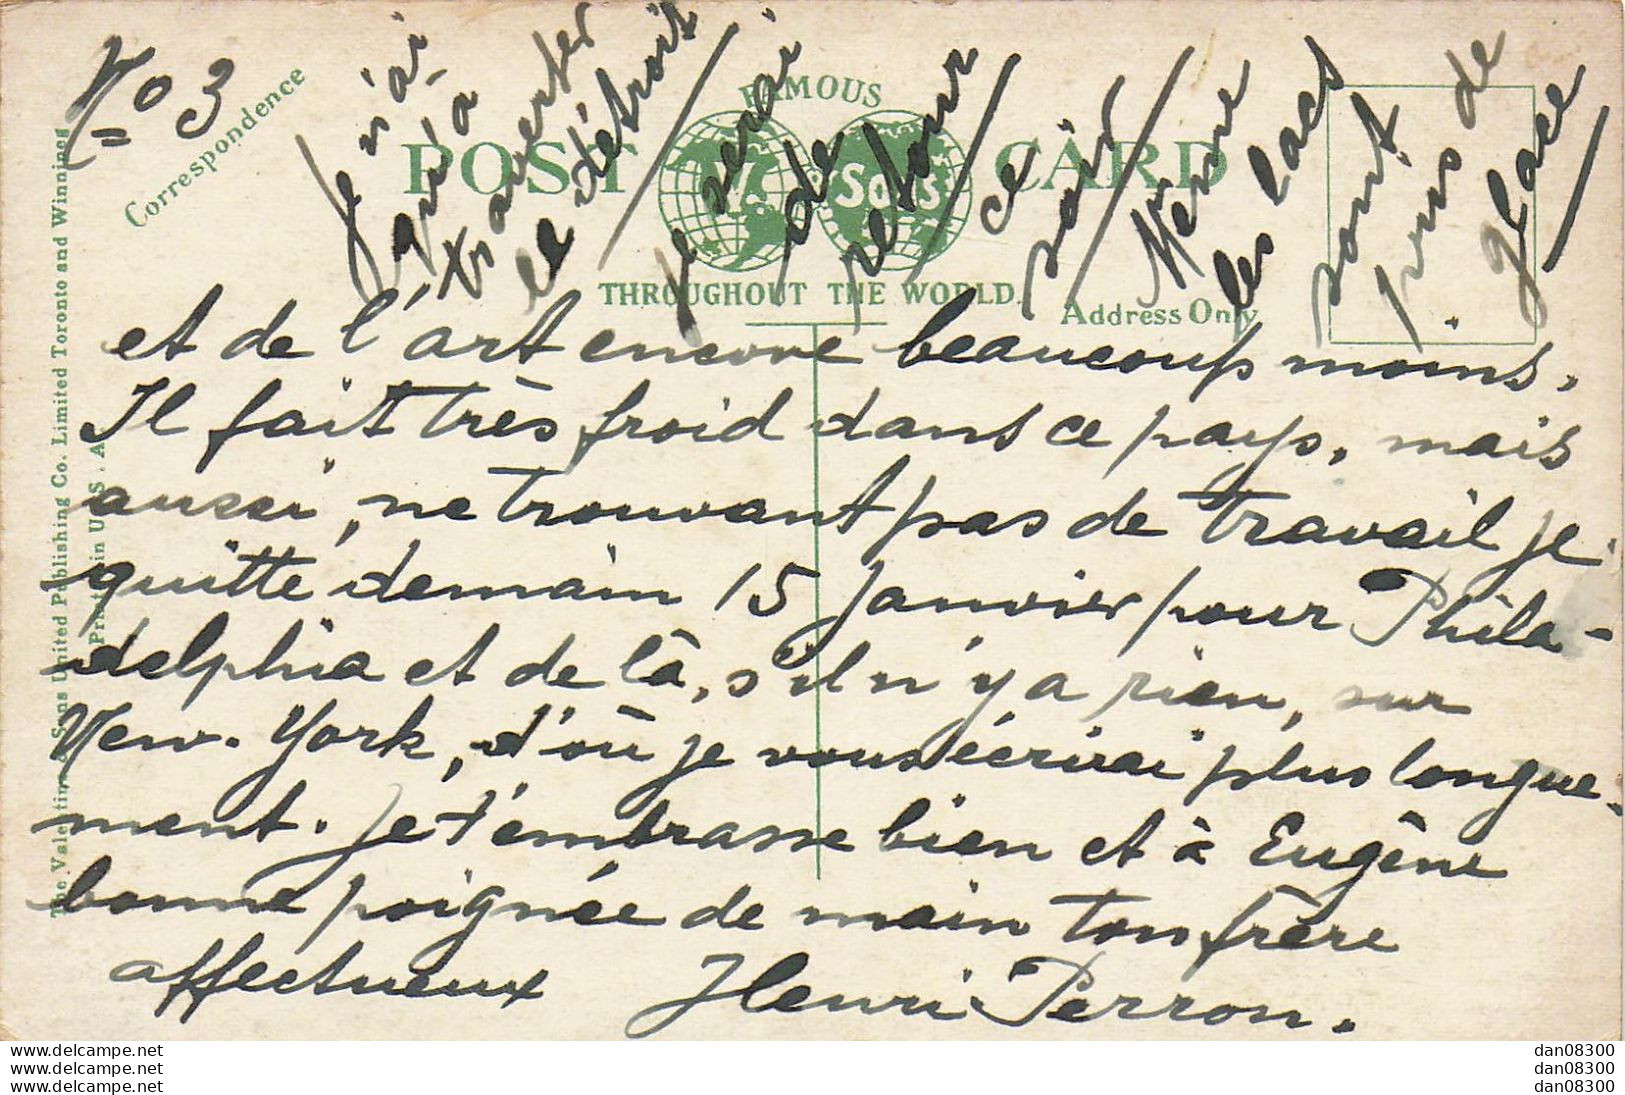 No 3
Correspondence
FAMOUS
POST CARD
V. Sons
THROUGHOUT THE WORLD.
Address Only
The Valentine & Sons United Publishing Co. Limited Toronto and Winnipeg
Printed in U.S.A.
Je n'ai
qu'a
traverser
le détroit
je serai
de
retour
ce
soir
Meme
les lacs
sont
pris de
glace
et de l'art encore beaucoup moins.
Il fait très froid dans ce pays, mais
aussi, ne trouvant pas de travail je
quitte demain 15 janvier pour Phila-
delphia et de là, s'il n'y a rien, sur
New-York, d'où je vous écrirai plus longue-
ment. Je t'embrasse bien et à Eugène
bonne poignée de main ton frère
affectueux Henri Perron.
dan08300
dan08300
dan08300
www.delcampe.net
www.delcampe.net
www.delcampe.net